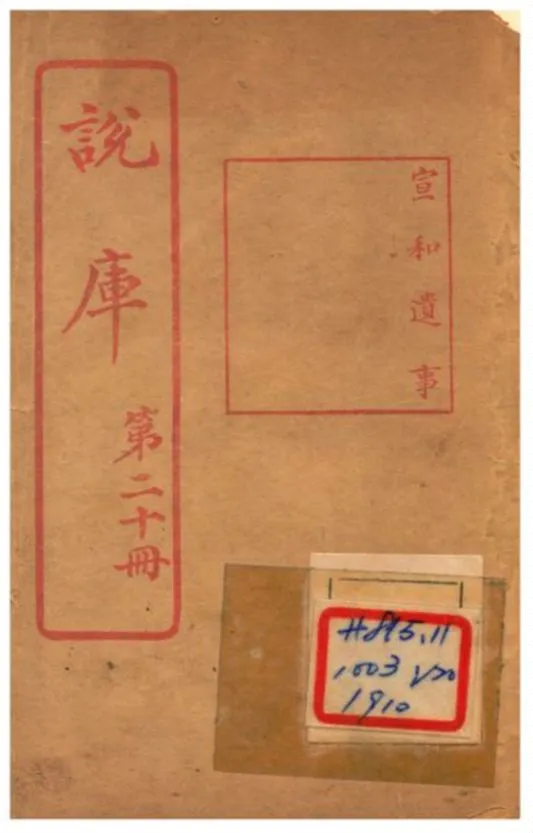 宣和遺事
說庫
第二十冊
H895.11
1003 V20
1910